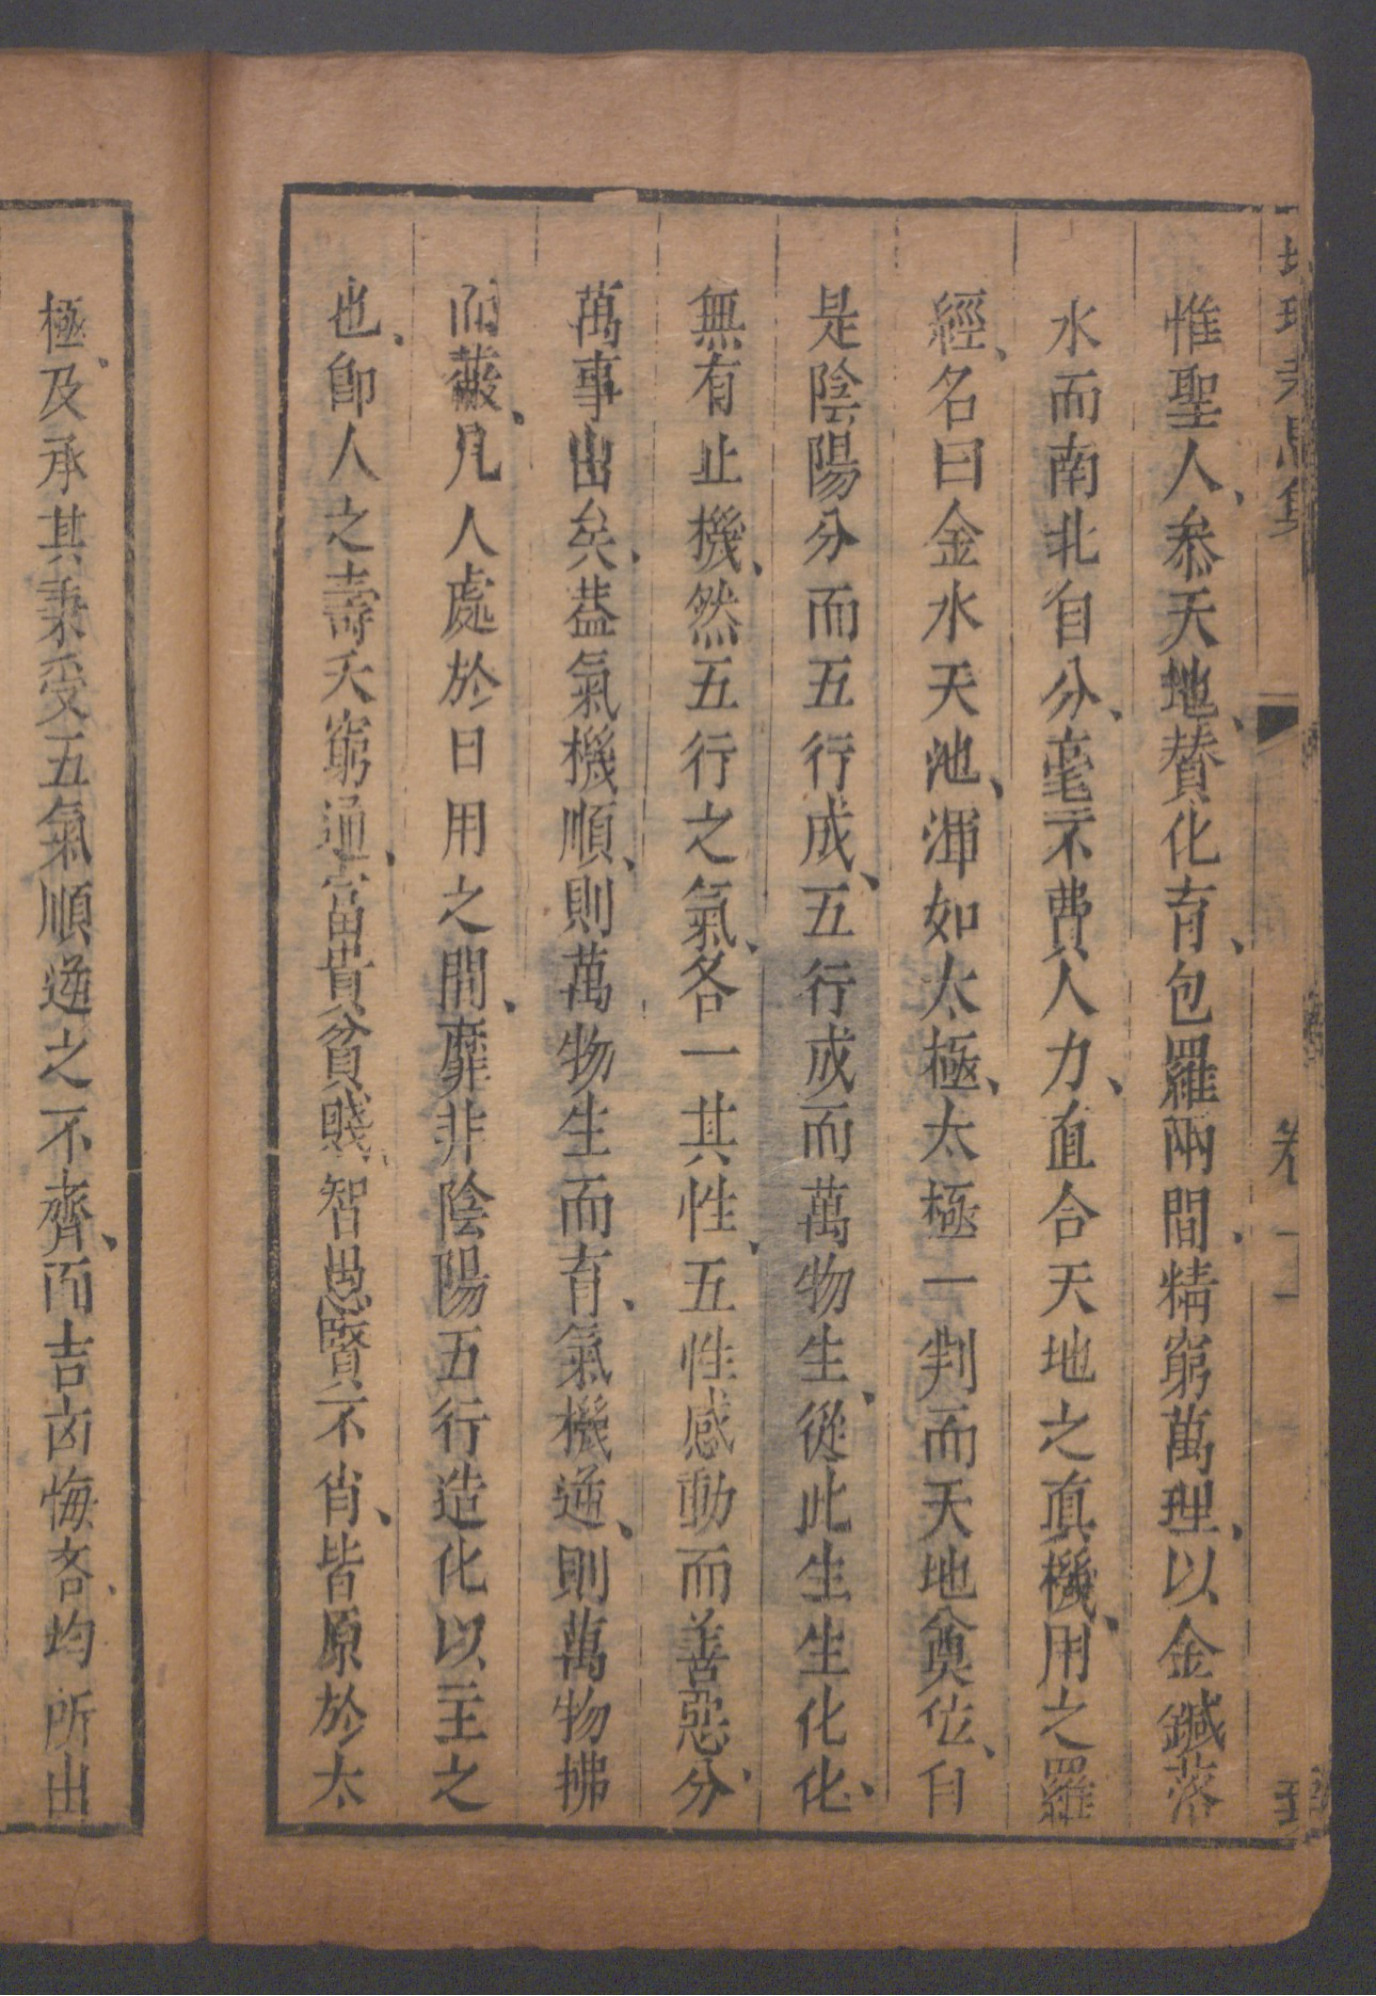 惟聖人、叅天地、賛化育、包羅兩間、精窮萬理、以金鍼落
水而南北自分、毫不費人力、直合天地之真機、用之羅
經、名曰金水天池、渾如太極、太極一判而天地奠位、自
是陰陽分而五行成、五行成而萬物生、從此生生化化、
無有止機、然五行之氣、各一其性、五性感動而善惡分、
萬事出矣、葢氣機順、則萬物生而育、氣機逆、則萬物拂
而蔽、凡人處於日用之間、靡非陰陽五行造化以主之
也、卽人之壽夭窮通、富貴貧賤、智愚賢不肖、皆原於太
極、及承其秉受五氣順逆之不齊、而吉凶悔吝、均所出
卷一